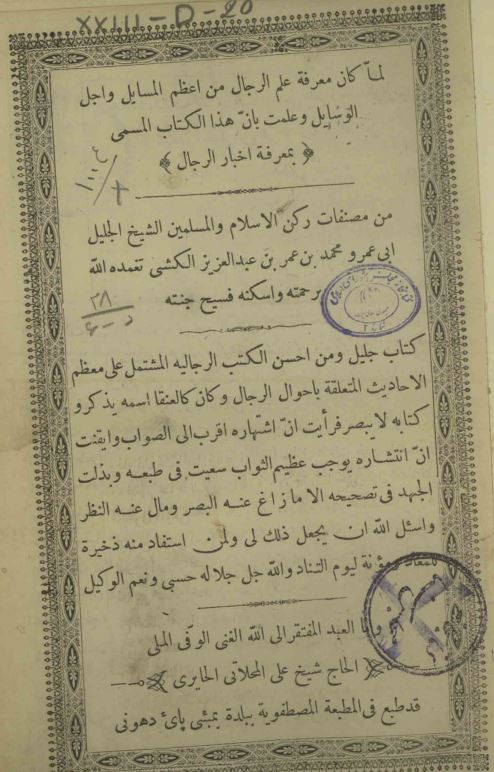 XXIII-D-20
لمّا كان معرفة علم الرجال من اعظم المسايل واجل
الوسايل وعلمت بانّ هذا الكتاب المسمى
﴿ بمعرفة اخبار الرجال ﴾
من مصنفات ركن الاسلام والمسلمين الشيخ الجليل
ابى عمرو محمد بن عمر بن عبدالعزيز الكشى تغمده الله
برحمته واسكنه فسيح جنته
٢٨
كتاب جليل ومن احسن الكتب الرجاليه المشتمل على معظم
الاحاديث المتعلقة باحوال الرجال وكان كالعنقا اسمه يذكر و
كتابه لا يبصر فرأيت انّ اشتهاره اقرب الى الصواب وايقنت
انّ انتشاره يوجب عظيم الثواب سعيت فى طبعه وبذلت
الجهد فى تصحيحه الا ما زاغ عنه البصر ومال عنه النظر
واسئل الله ان يجعل ذلك لى ولمن استفاد منه ذخيرة
للمعاد ومؤنة ليوم التناد والله جل جلاله حسبى ونعم الوكيل
وانا العبد المفتقر الى الله الغنى الوفى الملى
الحاج شيخ على المحلاتى الحايرى
قد طبع فى المطبعة المصطفوية ببلدة بمبئى پائ دهونى